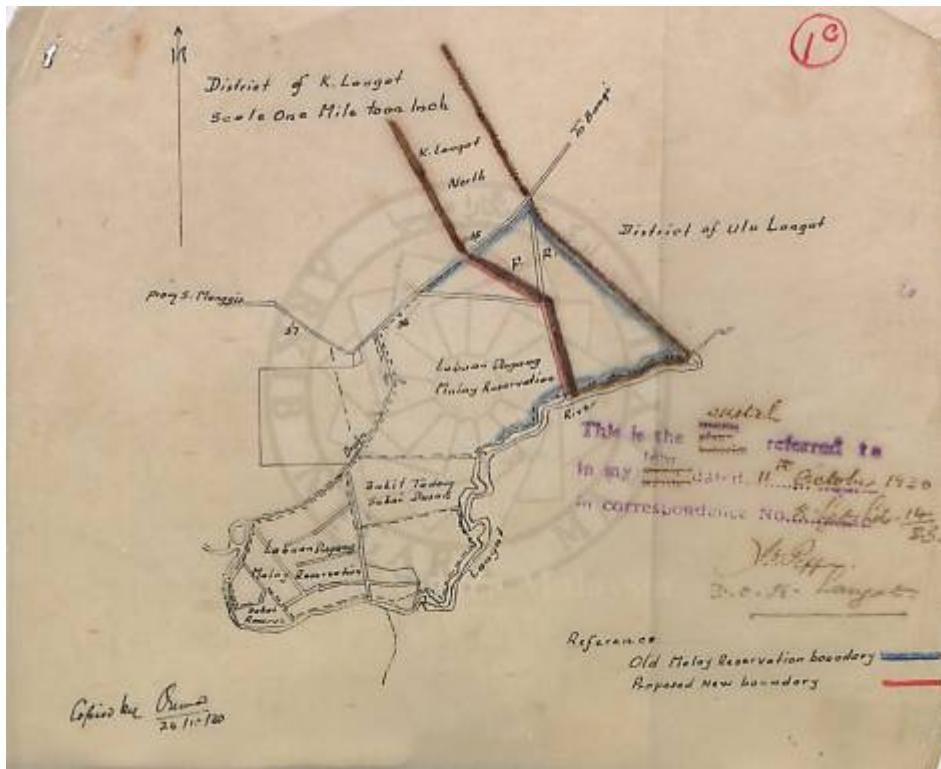 1 C
District of K. Langat
Scale One Mile to an Inch
To Bangi
K. Langat
North
District of Ulu Langat
F. R.
From S. Manggis
Labuan Dagang
Malay Reservation
River
Langat
Bukit Tadom
Sakai
Labuan Dagang
Malay Reservation
Sakai
Reserve
This is the
referred to
in my
dated 11th October 1920
in correspondence No.
Langat
Reference
Old Malay Reservation boundary
Proposed New boundary
Copied by